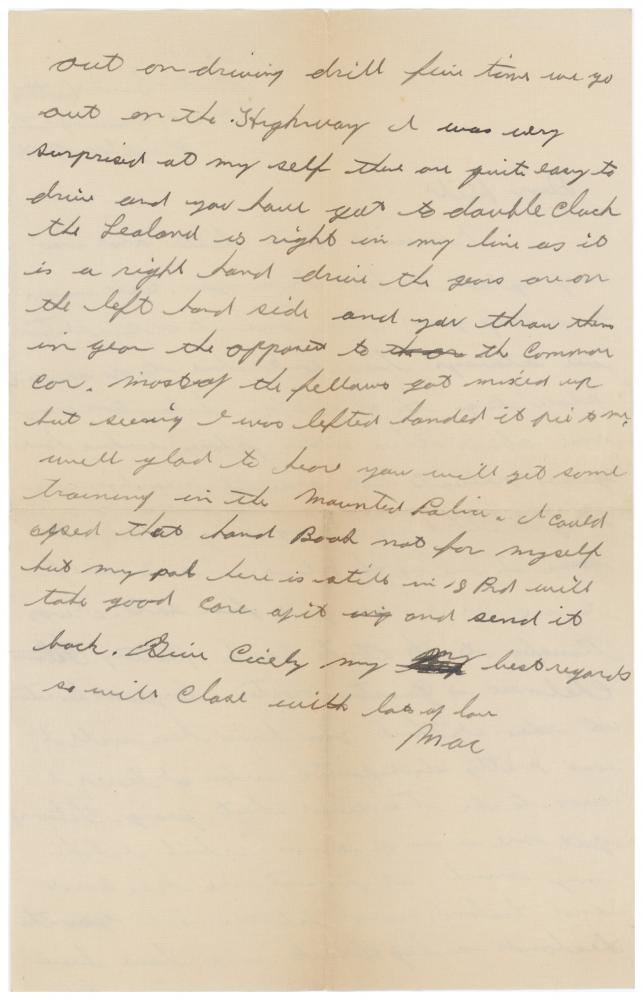 out on driving drill five times we go
out on the Highway I was very
surprised at my self they are quite easy to
drive and you have got to double Cluch
the Lealand is right in my line as it
is a right hand drive the gears are on
the left hand side and you throw them
in gear the opposet to the common
car. most of the fellows got mixed up
but seeing I was lefted handed it pie to me.
well glad to hear you will get some
training in the Mounted Police. I could
used that hand Book not for myself
but my pal here is still in is Prd will
take good care of it and send it
back. Give Cicely my my best regards
so will Close with lots of love
Mac